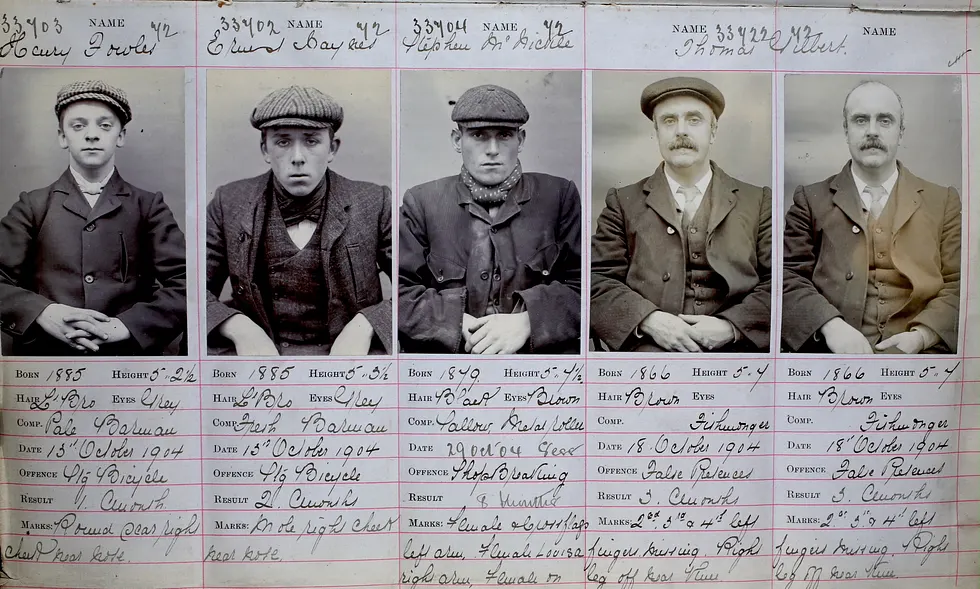 33703 NAME 72
Henry Fowles
BORN 1885 HEIGHT 5-2½
HAIR L' Bro EYES Grey
COMP. Pale Barman
DATE 15th October 1904
OFFENCE Bicycle
RESULT 1.
MARKS: Round scar right
cheek near nose.
33702 NAME 72
Haynes
BORN 1885 HEIGHT 5-3½
HAIR L' Bro EYES Grey
COMP. Fresh Barman
DATE 15th October 1904
OFFENCE Bicycle
RESULT 2.
MARKS: Mole right cheek
near nose.
33704 NAME 72
Stephen
BORN 1879. HEIGHT 5-7½
HAIR EYES Brown
COMP. Sallow Metal roller
DATE 29 Oct 04
OFFENCE Shop Breaking
RESULT 8
MARKS: Female & Cross flags
left arm, Female Louisa
right arm, Female on
NAME 33722 72
Thomas
BORN 1866 HEIGHT 5-4
HAIR Brown EYES
COMP. Fishmonger
DATE 18 October 1904
OFFENCE False Pretences
RESULT 3.
MARKS: 2nd 3rd & 4th left
fingers missing. Right
leg off near knee
NAME
BORN 1866 HEIGHT 5-4
HAIR Brown EYES
COMP. Fishmonger
DATE 18th October 1904
OFFENCE False Pretences
RESULT 3.
MARKS: & 4th left
fingers missing, Right
leg off near knee.